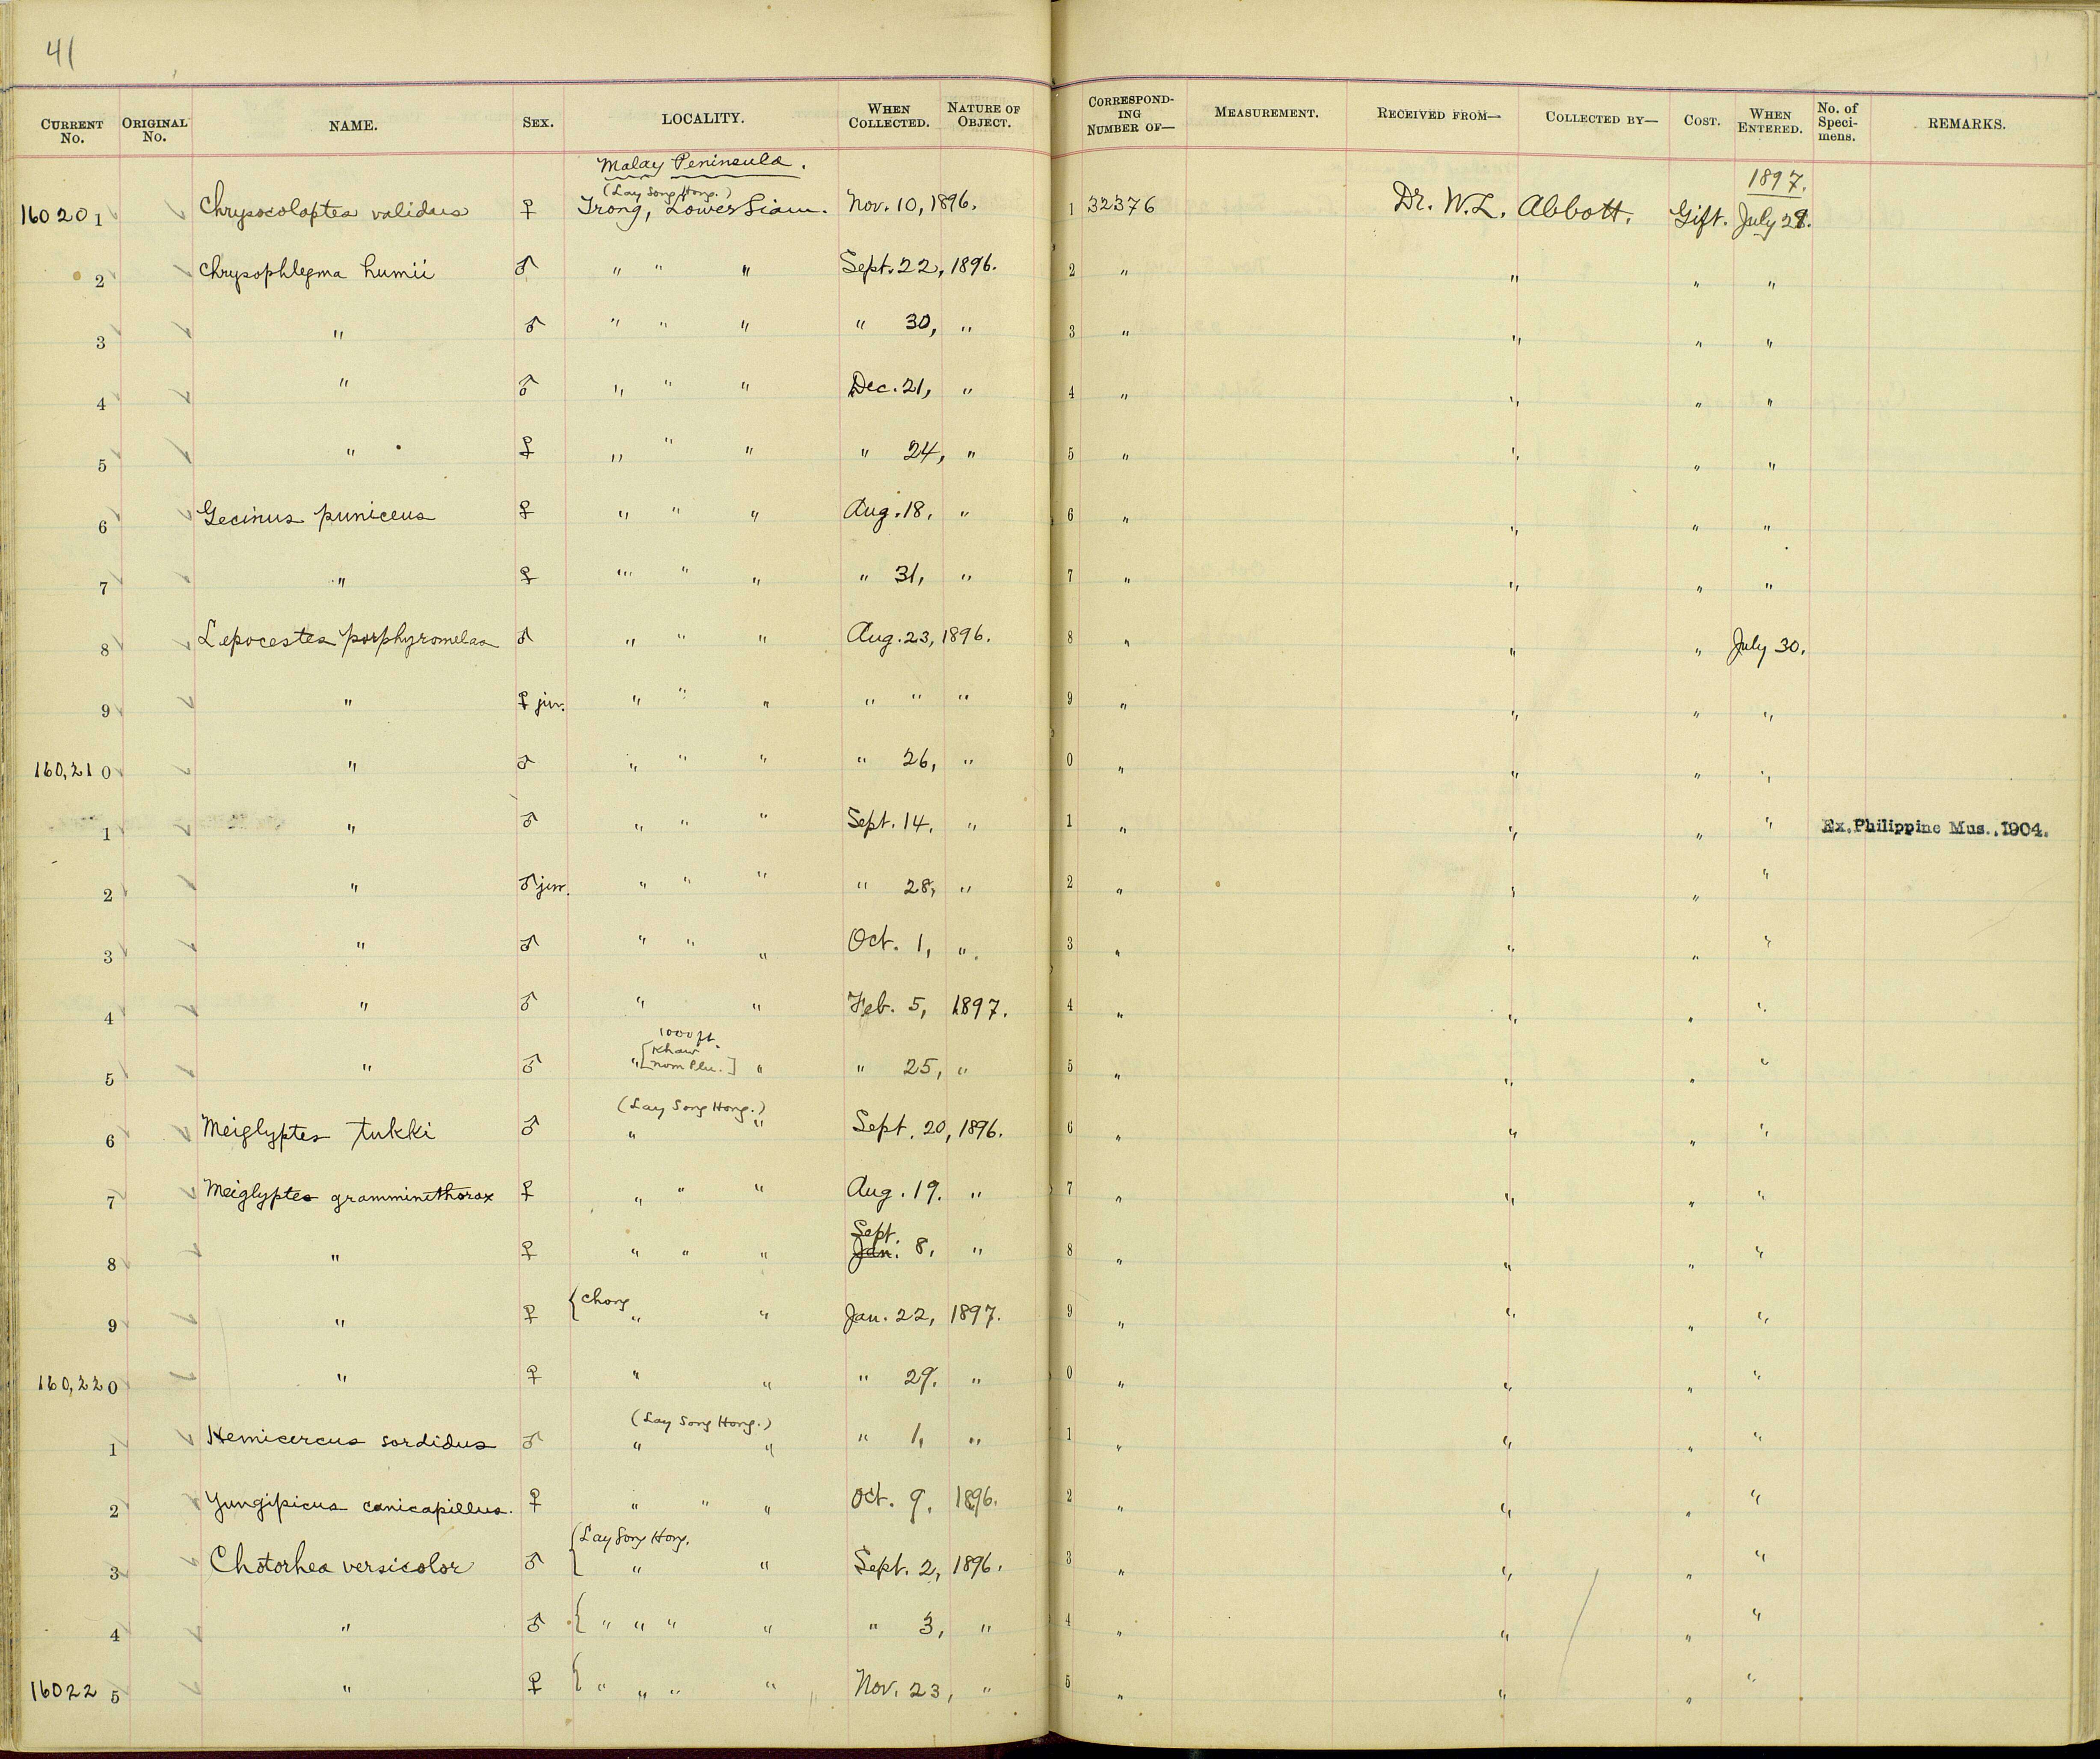 41
CURRENT No. ORIGINAL No. NAME. SEX. LOCALITY. WHEN COLLECTED. NATURE OF OBJECT. CORRESPONDING NUMBER OF— MEASUREMENT. RECEIVED FROM— COLLECTED BY— COST. WHEN ENTERED. No. of Specimens. REMARKS.
Malay Peninsula.
(Lay Song Hong.) 1897.
160201 Chrysocolaptes validus ♀ Trong, Lower Siam. Nov. 10, 1896. 1 32376 Dr. W.L. Abbott. Gift. July 29.
2 Chrysophlegma humii ♂ " " " Sept. 22, 1896. 2 " " " "
3 " ♂ " " " " 30, " 3 " " " "
4 " ♂ " " " Dec. 21, " 4 " " " "
5 " ♀ " " " " 24, " 5 " " " "
6 Gecinus puniceus ♀ " " " Aug. 18, " 6 " " " "
7 " ♀ " " " " 31, " 7 " " " "
8 Lepocestes porphyromelas ♂ " " " Aug. 23, 1896. 8 " " " July 30.
9 " ♀ juv. " " " " " " 9 " " " "
160,210 " ♂ " " " " 26, " 0 " " " "
1 " ♂ " " " Sept. 14, " 1 " " " " Ex. Philippine Mus., 1904.
2 " ♂ juv. " " " " 28, " 2 " " " "
3 " ♂ " " " Oct. 1, " 3 " " " "
4 " ♂ " " Feb. 5, 1897. 4 " " " "
1000 ft.
5 " ♂ " [Khaw Nom Plu.] " " 25, " 5 " " " "
(Lay Song Hong.)
6 Meiglyptes tukki ♂ " " Sept. 20, 1896. 6 " " " "
7 Meiglyptes gramminithorax ♀ " " " Aug. 19. " 7 " " " "
Sept.
8 " ♀ " " " Jan. 8, " 8 " " " "
{Chong
9 " ♀ " " Jan. 22, 1897. 9 " " " "
160,220 " ♀ " " " 29. " 0 " " " "
(Lay Song Hong.)
1 Hemicercus sordidus ♂ " " " 1, " 1 " " " "
2 Yungipicus canicapillus. ♀ " " " Oct. 9, 1896. 2 " " " "
{Lay Song Hong.
3 Chotorhea versicolor ♂ " " Sept. 2, 1896. 3 " " " "
4 " ♂ { " " " " " 3, " 4 " " " "
160225 " ♀ { " " " " Nov. 23, " 5 " " " "